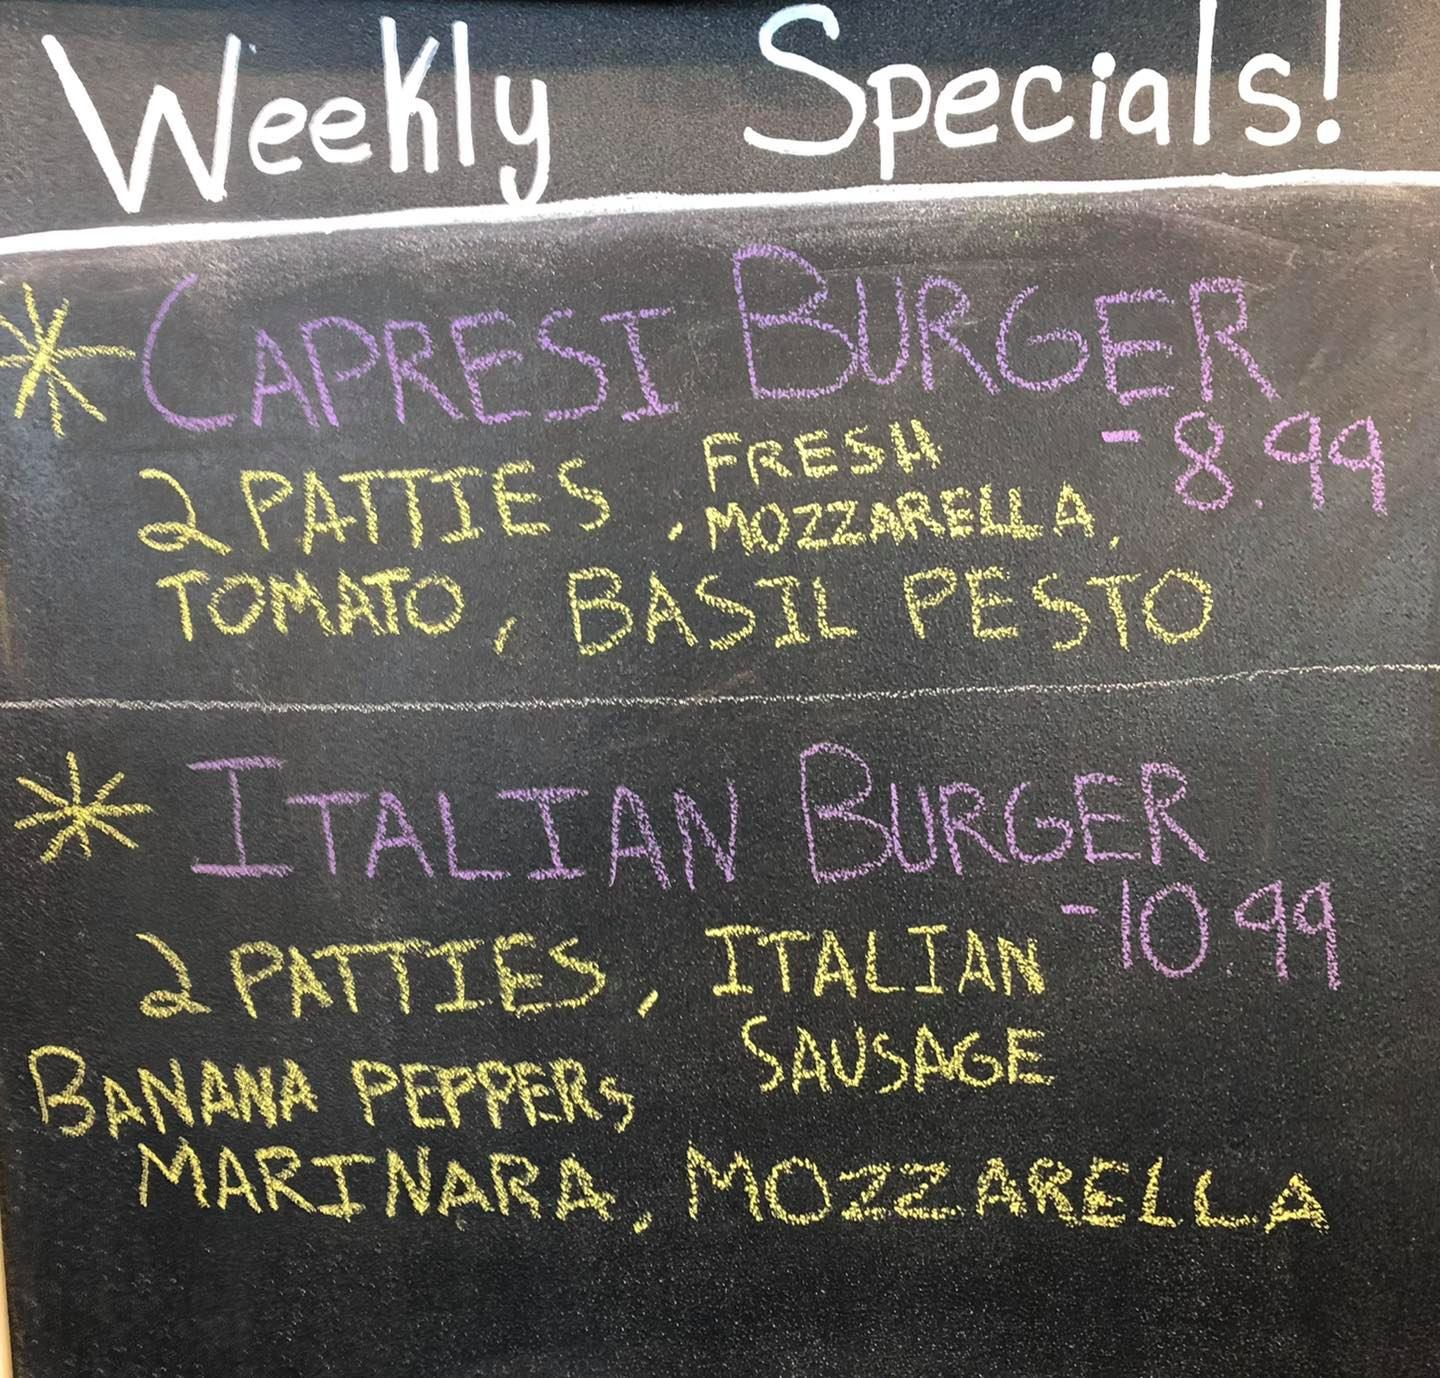 Weekly Specials!
* CAPRESI BURGER
- 8.99
2 PATTIES, FRESH
MOZZARELLA,
TOMATO, BASIL PESTO
* ITALIAN BURGER
- 10.99
2 PATTIES, ITALIAN
SAUSAGE
BANANA PEPPERS
MARINARA, MOZZARELLA